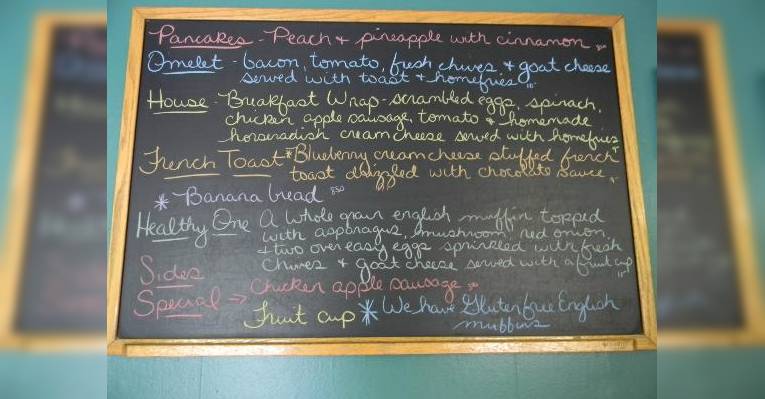 Pancakes - Peach & pineapple with cinnamon
Omelet - bacon, tomato, fresh chives & goat cheese
served with toast & homefries
House - Breakfast Wrap - scrambled eggs, spinach,
chicken apple sausage, tomato & homemade
horseradish cream cheese served with homefries
French Toast * Blueberry cream cheese stuffed french
toast drizzled with chocolate sauce
* Banana bread 850
Healthy One A whole grain english muffin topped
with asparagus, mushroom, red onion,
& two over easy eggs sprinkled with fresh
chives & goat cheese served with a fruit cup
Sides
Special → Chicken apple sausage
Fruit cup * We have Gluten free English
muffins